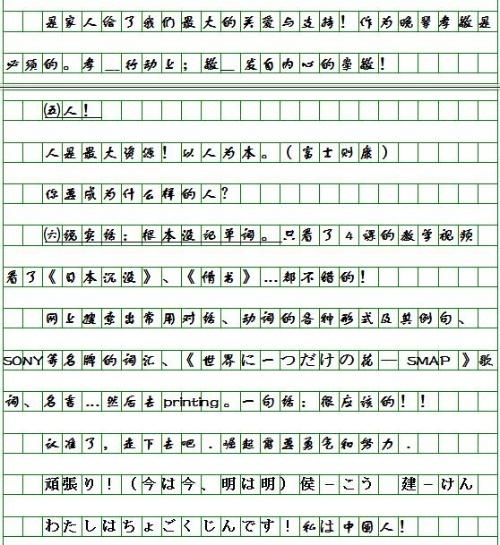 是家人给了我们最大的关爱与支持！作为晚辈孝敬是
必须的。孝__行动上；敬__发自内心的崇敬！
㈤人！
人是最大资源！以人为本。（富士则康）
你要成为什么样的人？
㈥说实话：根本没记单词。只看了4课的教学视频
看了《日本沉没》、《情书》...都不错的！
网上搜索出常用对话、动词的各种形式及其例句、
SONY等名牌的词汇、《世界に一つだけの花—SMAP》歌
词、名言...然后去printing。一句话：很应该的！！
认准了，走下去吧．崛起需要勇气和努力．
頑張り！（今は今、明は明）侯－こう　建－けん
わたしはちょごくじんです！私は中國人！